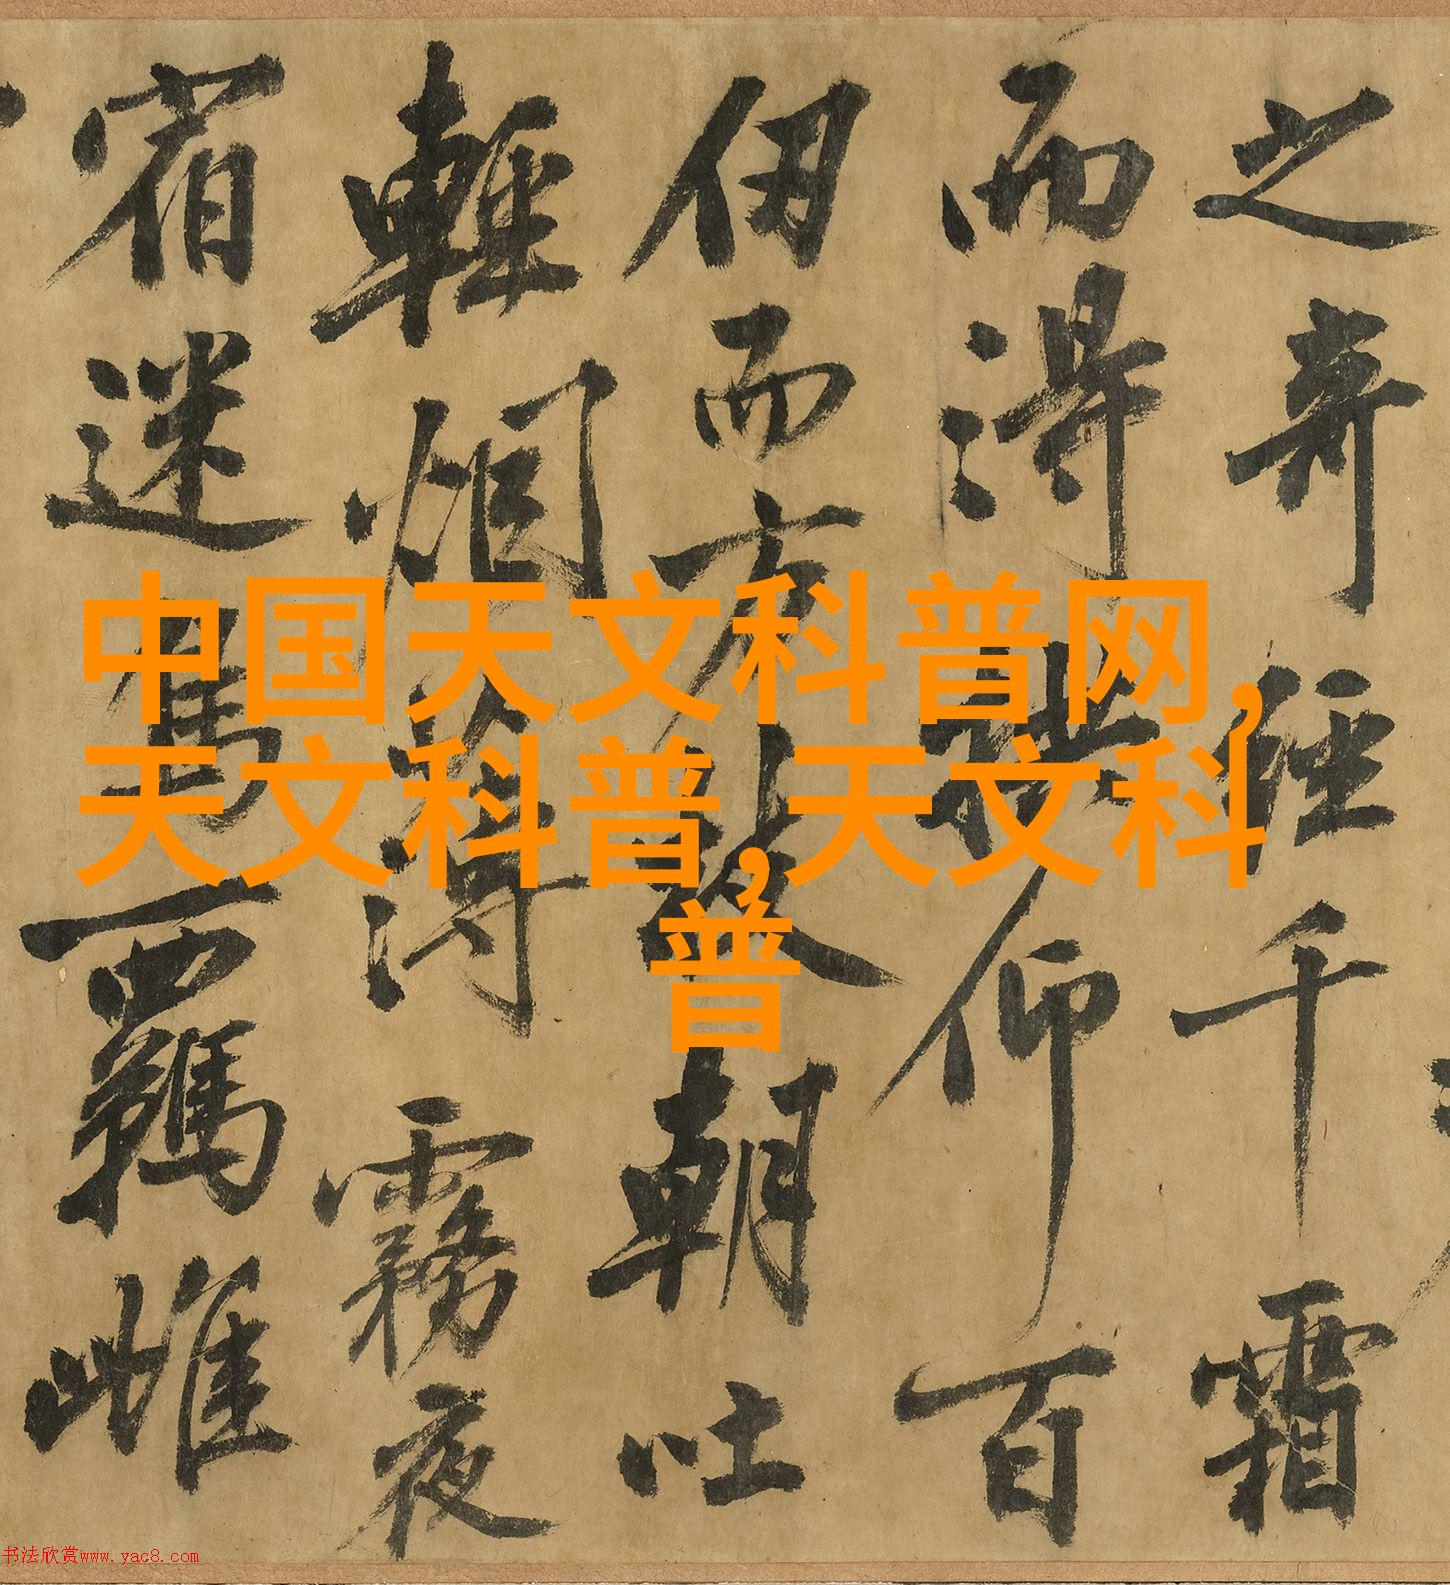 之奇經千霜
而得拱仰百
仞而方枝朝吐
輕烟薄霧夜
宿迷鳥羈雌
中国天文科普网,
天文科普,天文科
普
书法欣赏www.yac8.com